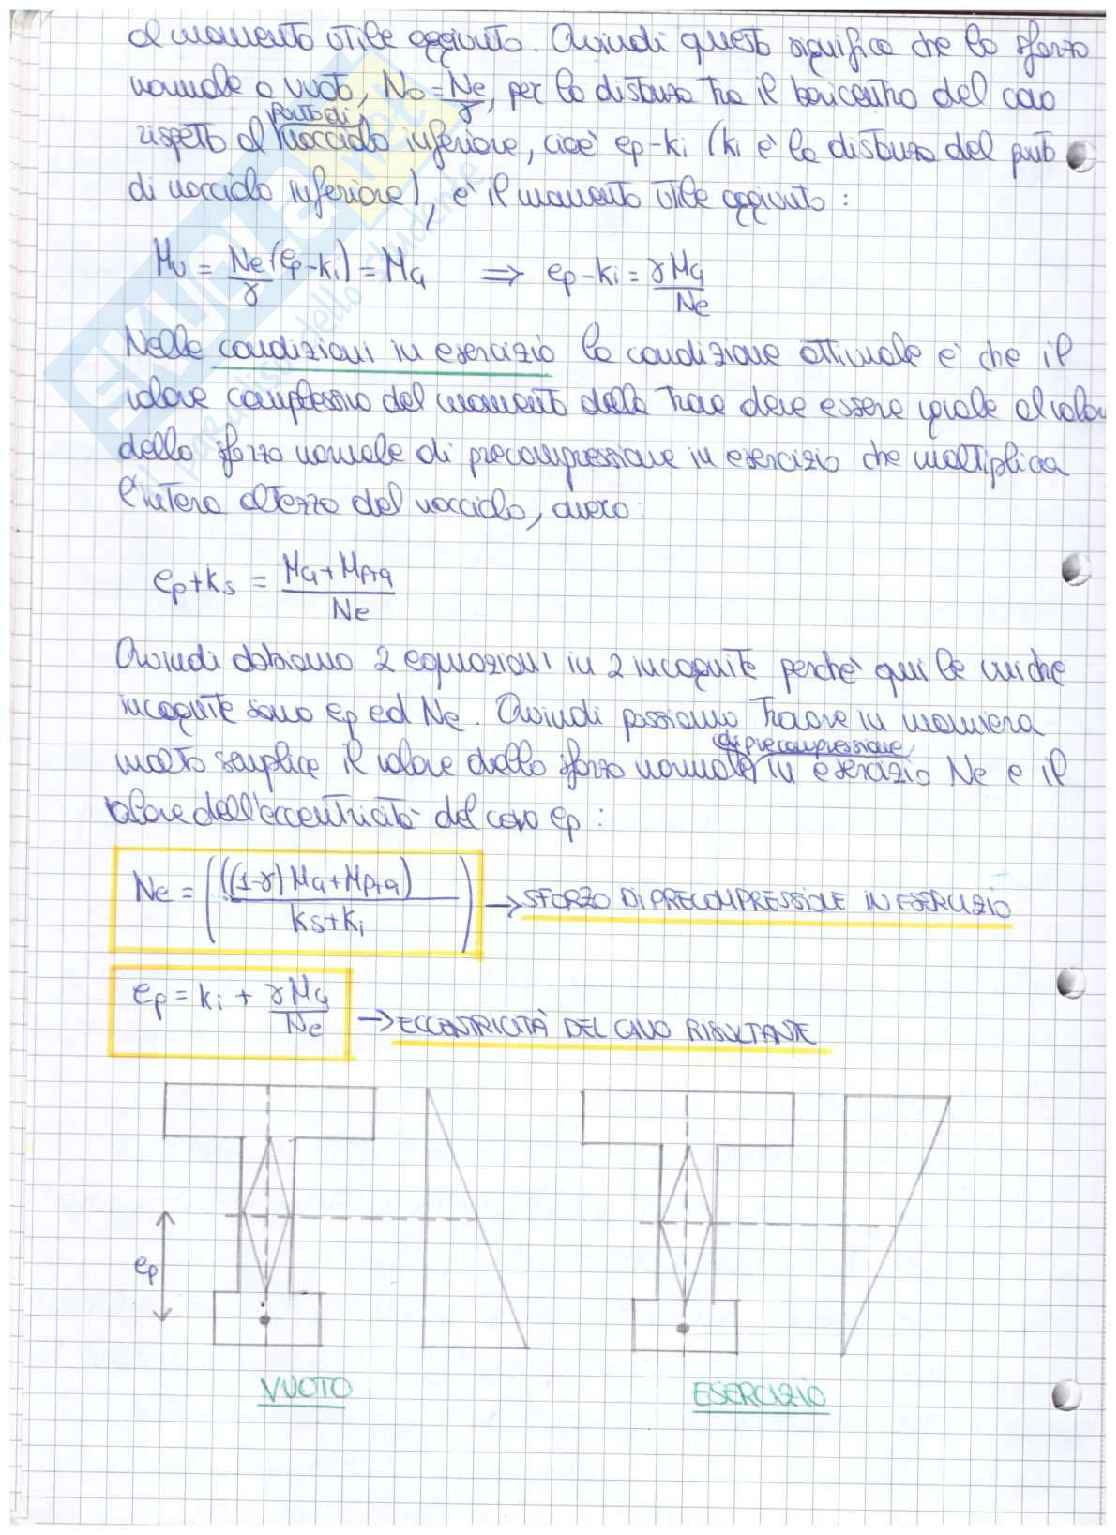 al momento utile aggiunto. Quindi questo significa che lo sforzo
normale a vuoto, No = Ne/γ, per la distanza tra il baricentro del cavo
rispetto al punto di nocciolo inferiore, cioè ep-ki (ki è la distanza del punto
di nocciolo inferiore), è il momento utile aggiunto :
Mu = Ne/γ (ep-ki) = MG ⇒ ep-ki = γMG/Ne
Nelle condizioni in esercizio la condizione ottimale è che il
valore complessivo del momento della trave deve essere uguale al valore
dello sforzo normale di precompressione in esercizio che moltiplica
l'intera altezza del nocciolo, ovvero
ep+ks = (MG+Mp+q)/Ne
Quindi abbiamo 2 equazioni in 2 incognite perché qui le uniche
incognite sono ep ed Ne. Quindi possiamo trovare in maniera
molto semplice il valore dello sforzo normale di precompressione in esercizio Ne e il
valore dell'eccentricità del cavo ep :
Ne = (((1-γ)MG+Mp+q)/(ks+ki)) → SFORZO DI PRECOMPRESSIONE IN ESERCIZIO
ep = ki + γMG/Ne → ECCENTRICITÀ DEL CAVO RISULTANTE
ep
VUOTO ESERCIZIO